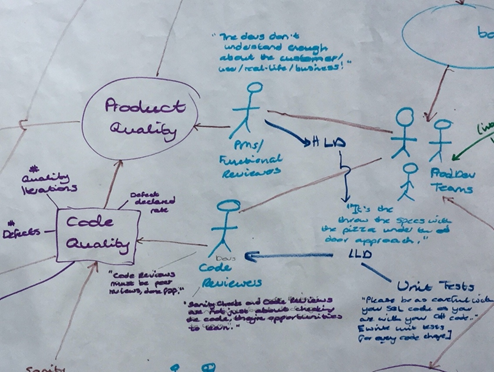 "The devs don't
understand enough
about the customer/
user/real-life/business!"
bo
Product
Quality
PMs/
Functional
Reviewers
HLD
ProdDev
Teams
# Quality
Iterations
Defects
declared
rate
# Defects
Code
Quality
"It's the
throw the specs with
the pizza under the
door approach."
Devs
Code
Reviewers
LLD
"Code Reviews
must be peer
reviews, done pop."
"Sanity Checks and Code Reviews
are not just about checking
the code, they're opportunities
to learn."
Unit Tests
"Please be as careful with
your SQL code as you
are with your C# code."
[Write unit tests
for every code change]
Sanity